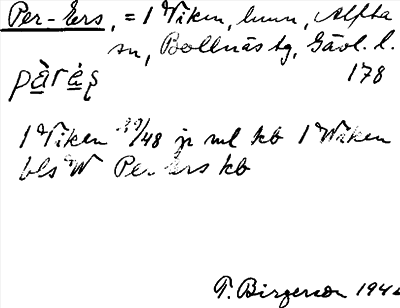 Per-Ers, = 1 Viken, hmn, Alfta
sn, Bollnäs tg, Gävl. l.
pàrés 178
1 Viken 39/48 jr ml kb 1 Wiken
bls W Per Ers kb
T. Birgerson 194